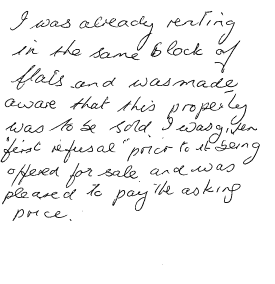 I was already renting
in the same block of
flats and was made
aware that this property
was to be sold. I was given
"first refusal" prior to it being
offered for sale and was
pleased to pay the asking
price.